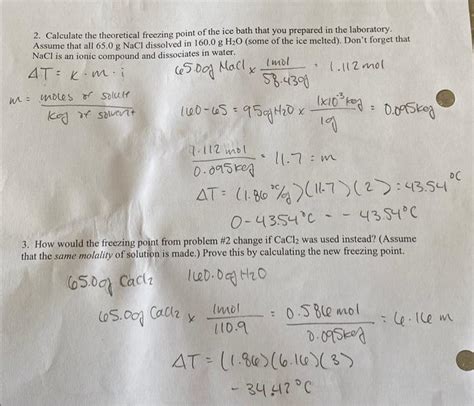 2. Calculate the theoretical freezing point of the ice bath that you prepared in the laboratory.
Assume that all 65.0 g NaCl dissolved in 160.0 g H₂O (some of the ice melted). Don't forget that
NaCl is an ionic compound and dissociates in water.
ΔT = K · m · i
65.0g NaCl × 1mol / 58.430g = 1.112 mol
m = moles of solute / Keg of solvent
160-65 = 95g H₂O × 1×10⁻³ keg / 1g = 0.095keg
1.112 mol / 0.095keg = 11.7 = m
ΔT = (1.86 °C/g)(11.7)(2) = 43.54 °C
0 - 43.54°C = - 43.54°C
3. How would the freezing point from problem #2 change if CaCl₂ was used instead? (Assume
that the same molality of solution is made.) Prove this by calculating the new freezing point.
65.0g CaCl₂ 160.0g H₂O
65.00g CaCl₂ × 1mol / 110.9 = 0.586 mol / 0.095keg = 6.16 m
ΔT = (1.86)(6.16)(3)
- 34.42°C